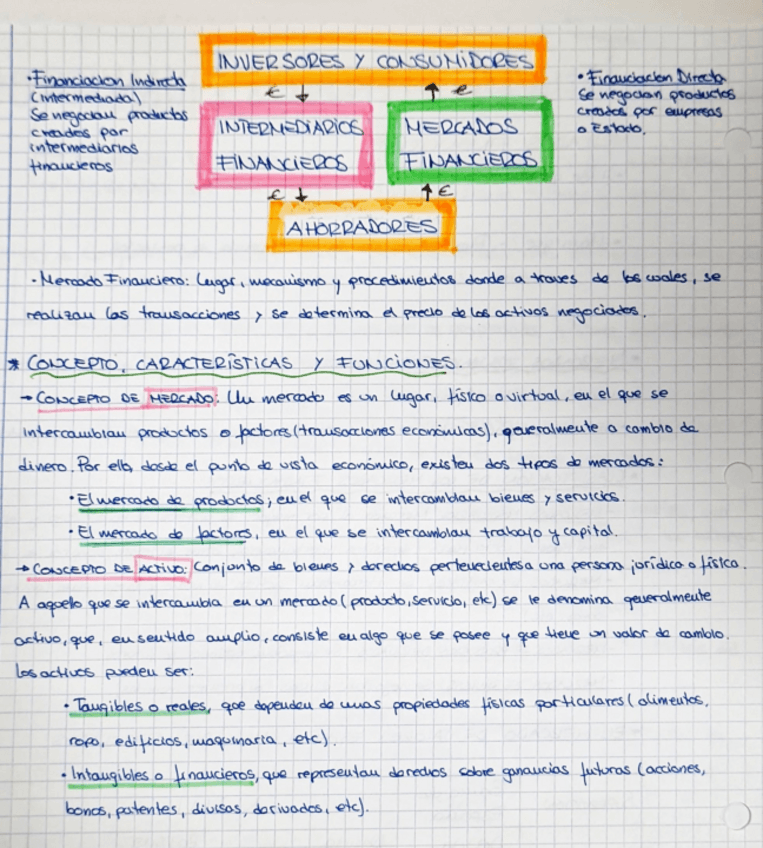 INVERSORES Y CONSUMIDORES
· Financiación Indirecta
(intermediada)
Se negocian productos
creados por
intermediarios
financieros
€ ↓
↑ €
· Financiación Directa
Se negocian productos
creados por empresas
o Estado.
INTERMEDIARIOS
FINANCIEROS
MERCADOS
FINANCIEROS
€ ↓
↑ €
AHORRADORES
· Mercado Financiero: Lugar, mecanismo y procedimientos donde a traves de los cuales, se
realizan las transacciones y se determina el precio de los activos negociados.
* CONCEPTO, CARACTERÍSTICAS Y FUNCIONES.
→ CONCEPTO DE MERCADO: Un mercado es un lugar, físico o virtual, en el que se
intercambian productos o factores (transacciones económicas), generalmente a cambio de
dinero. Por ello, desde el punto de vista económico, existen dos tipos de mercados:
· El mercado de productos; en el que se intercambian bienes y servicios.
· El mercado de factores, en el que se intercambian trabajo y capital.
→ CONCEPTO DE ACTIVO: Conjunto de bienes y derechos pertenecientes a una persona jurídica o física.
A aquello que se intercambia en un mercado (producto, servicio, etc) se le denomina generalmente
activo, que, en sentido amplio, consiste en algo que se posee y que tiene un valor de cambio.
Los activos pueden ser:
· Tangibles o reales, que dependen de unas propiedades físicas particulares (alimentos,
ropa, edificios, maquinaria, etc).
· Intangibles o financieros, que representan derechos sobre ganancias futuras (acciones,
bonos, patentes, divisas, derivados, etc).